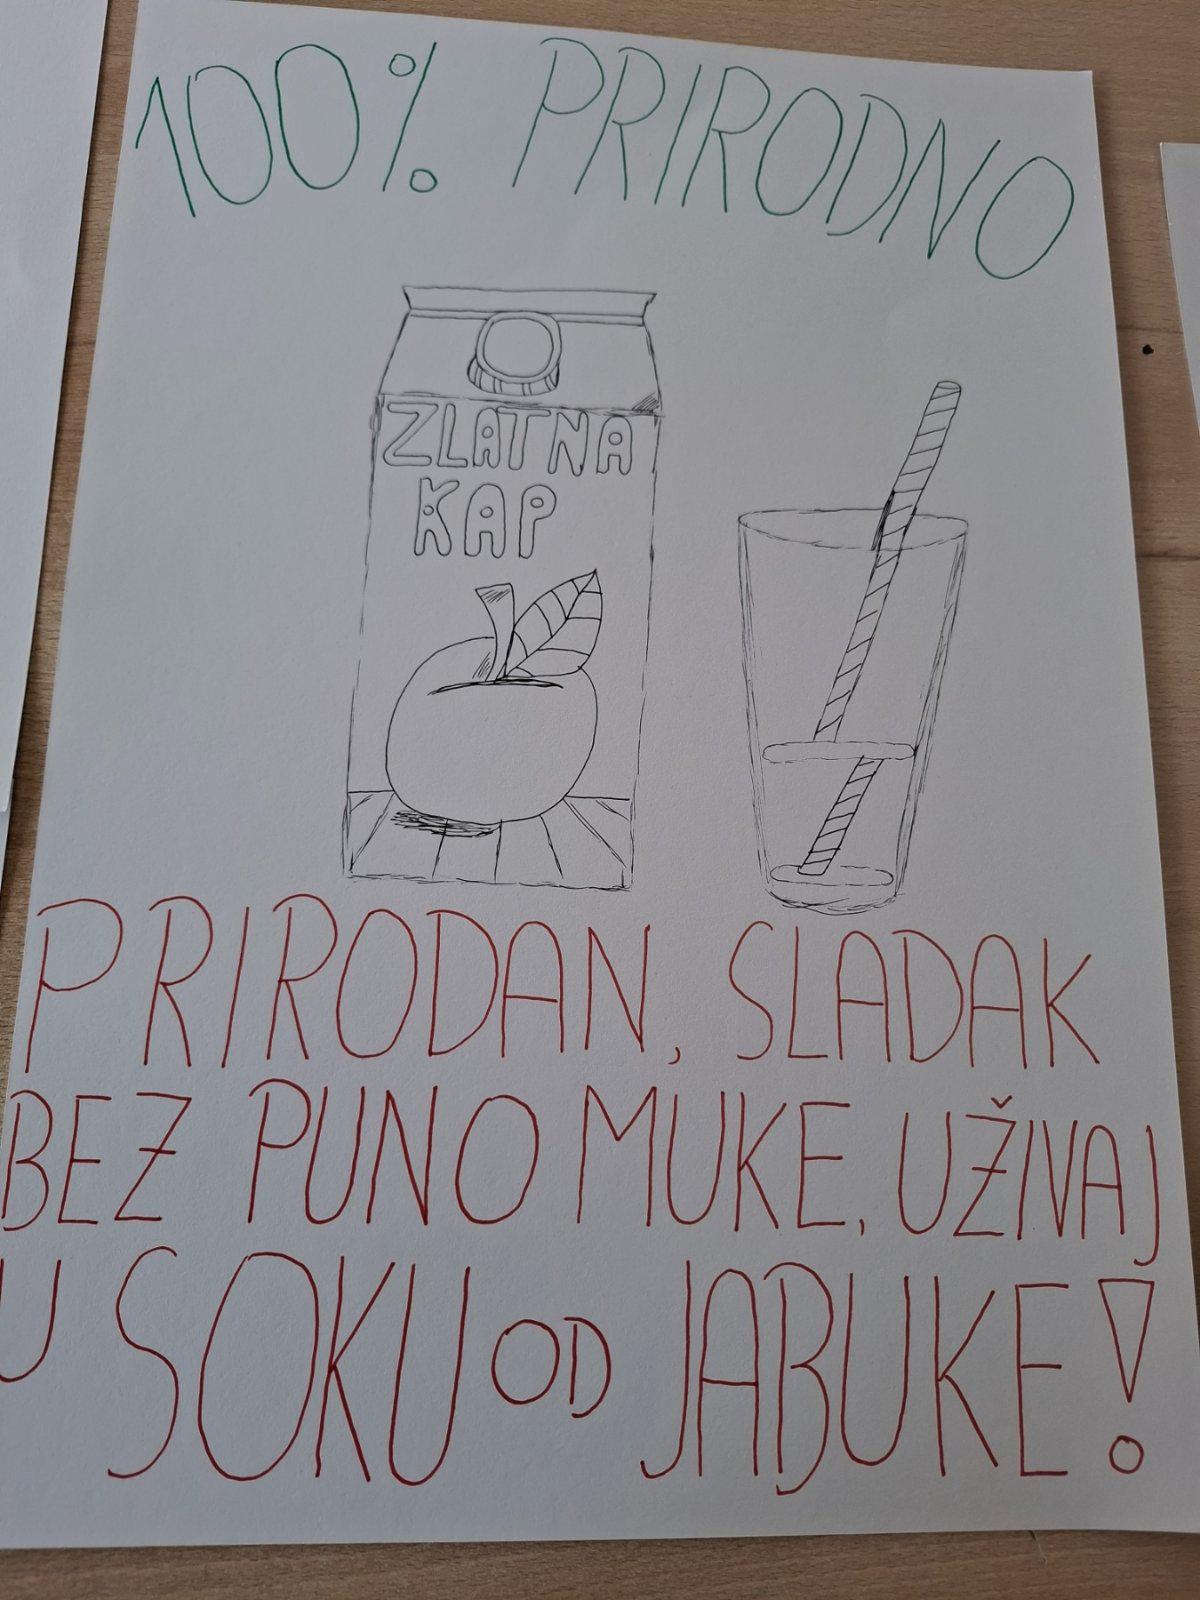 100% PRIRODNO
ZLATNA
KAP
PRIRODAN, SLADAK
BEZ PUNO MUKE, UŽIVAJ
U SOKU OD JABUKE!